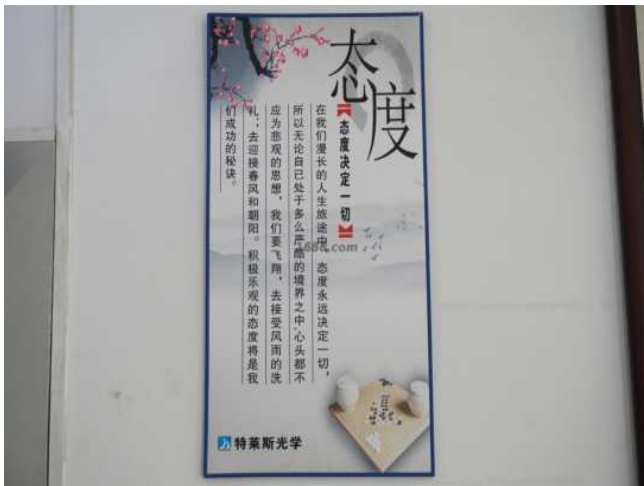 态度
态度决定一切
在我们漫长的人生旅途中，态度永远决定一切，
所以无论自己处于多么严酷的境界之中，心头都不
应为悲观的思想，我们要飞翔，去接受风雨的洗
礼；去迎接春风和朝阳。积极乐观的态度将是我
们成功的秘诀。
1688.com
特莱斯光学